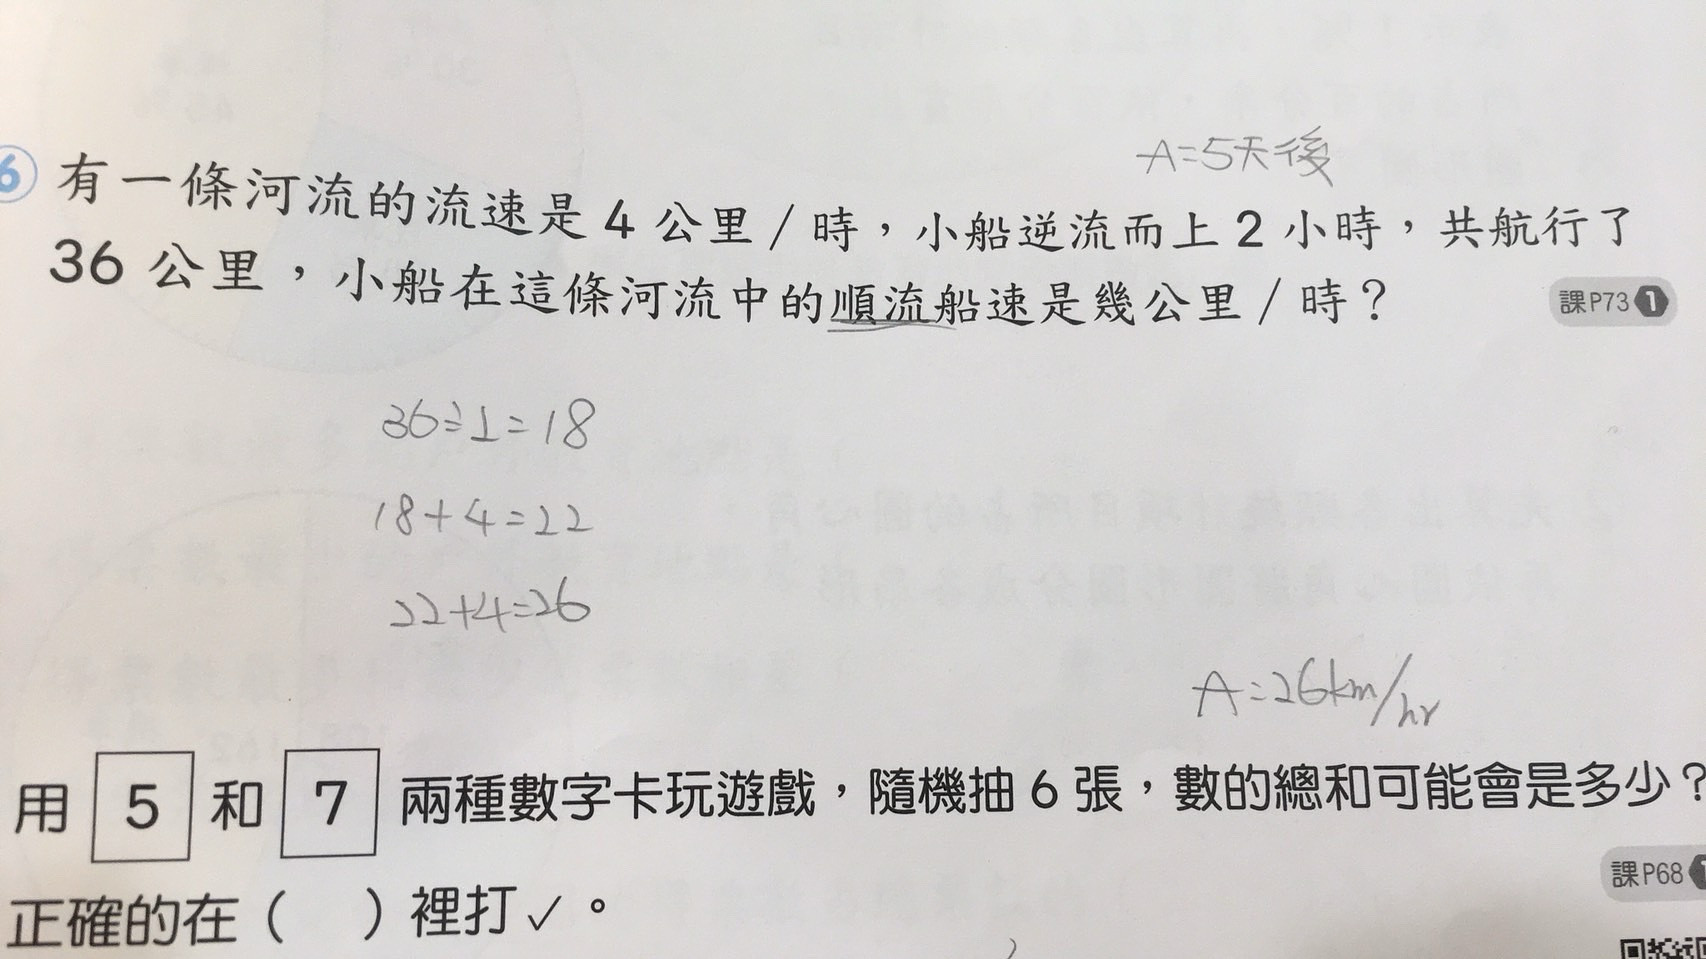 A=5天後
6 有一條河流的流速是 4 公里/時，小船逆流而上 2 小時，共航行了
36 公里，小船在這條河流中的順流船速是幾公里/時？
課P73 1
36÷2=18
18+4=22
22+4=26
A=26km/hr
用 5 和 7 兩種數字卡玩遊戲，隨機抽 6 張，數的總和可能會是多少？
課P68 1
正確的在（ ）裡打✓。